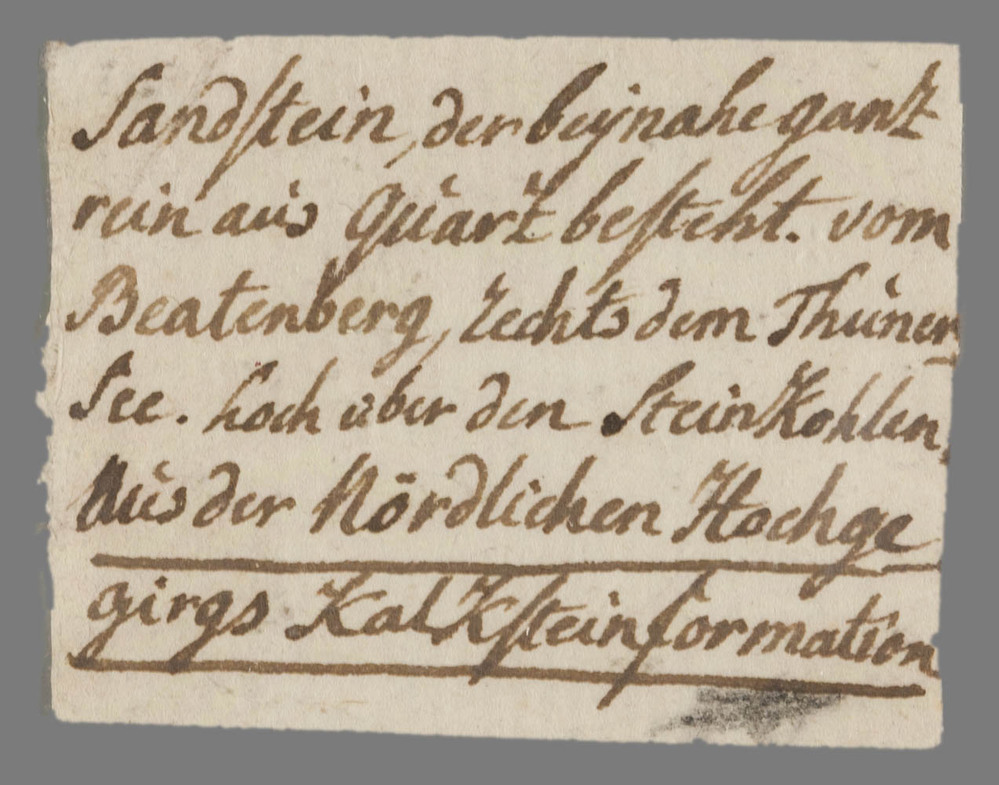 Sandstein, der beynahe gantz
rein aus Quartz besteht. vom
Beatenberg, rechts dem Thuner
See. hoch über den SteinKohlen,
Aus der Nördlichen Hochge
girgs KalKsteinformation